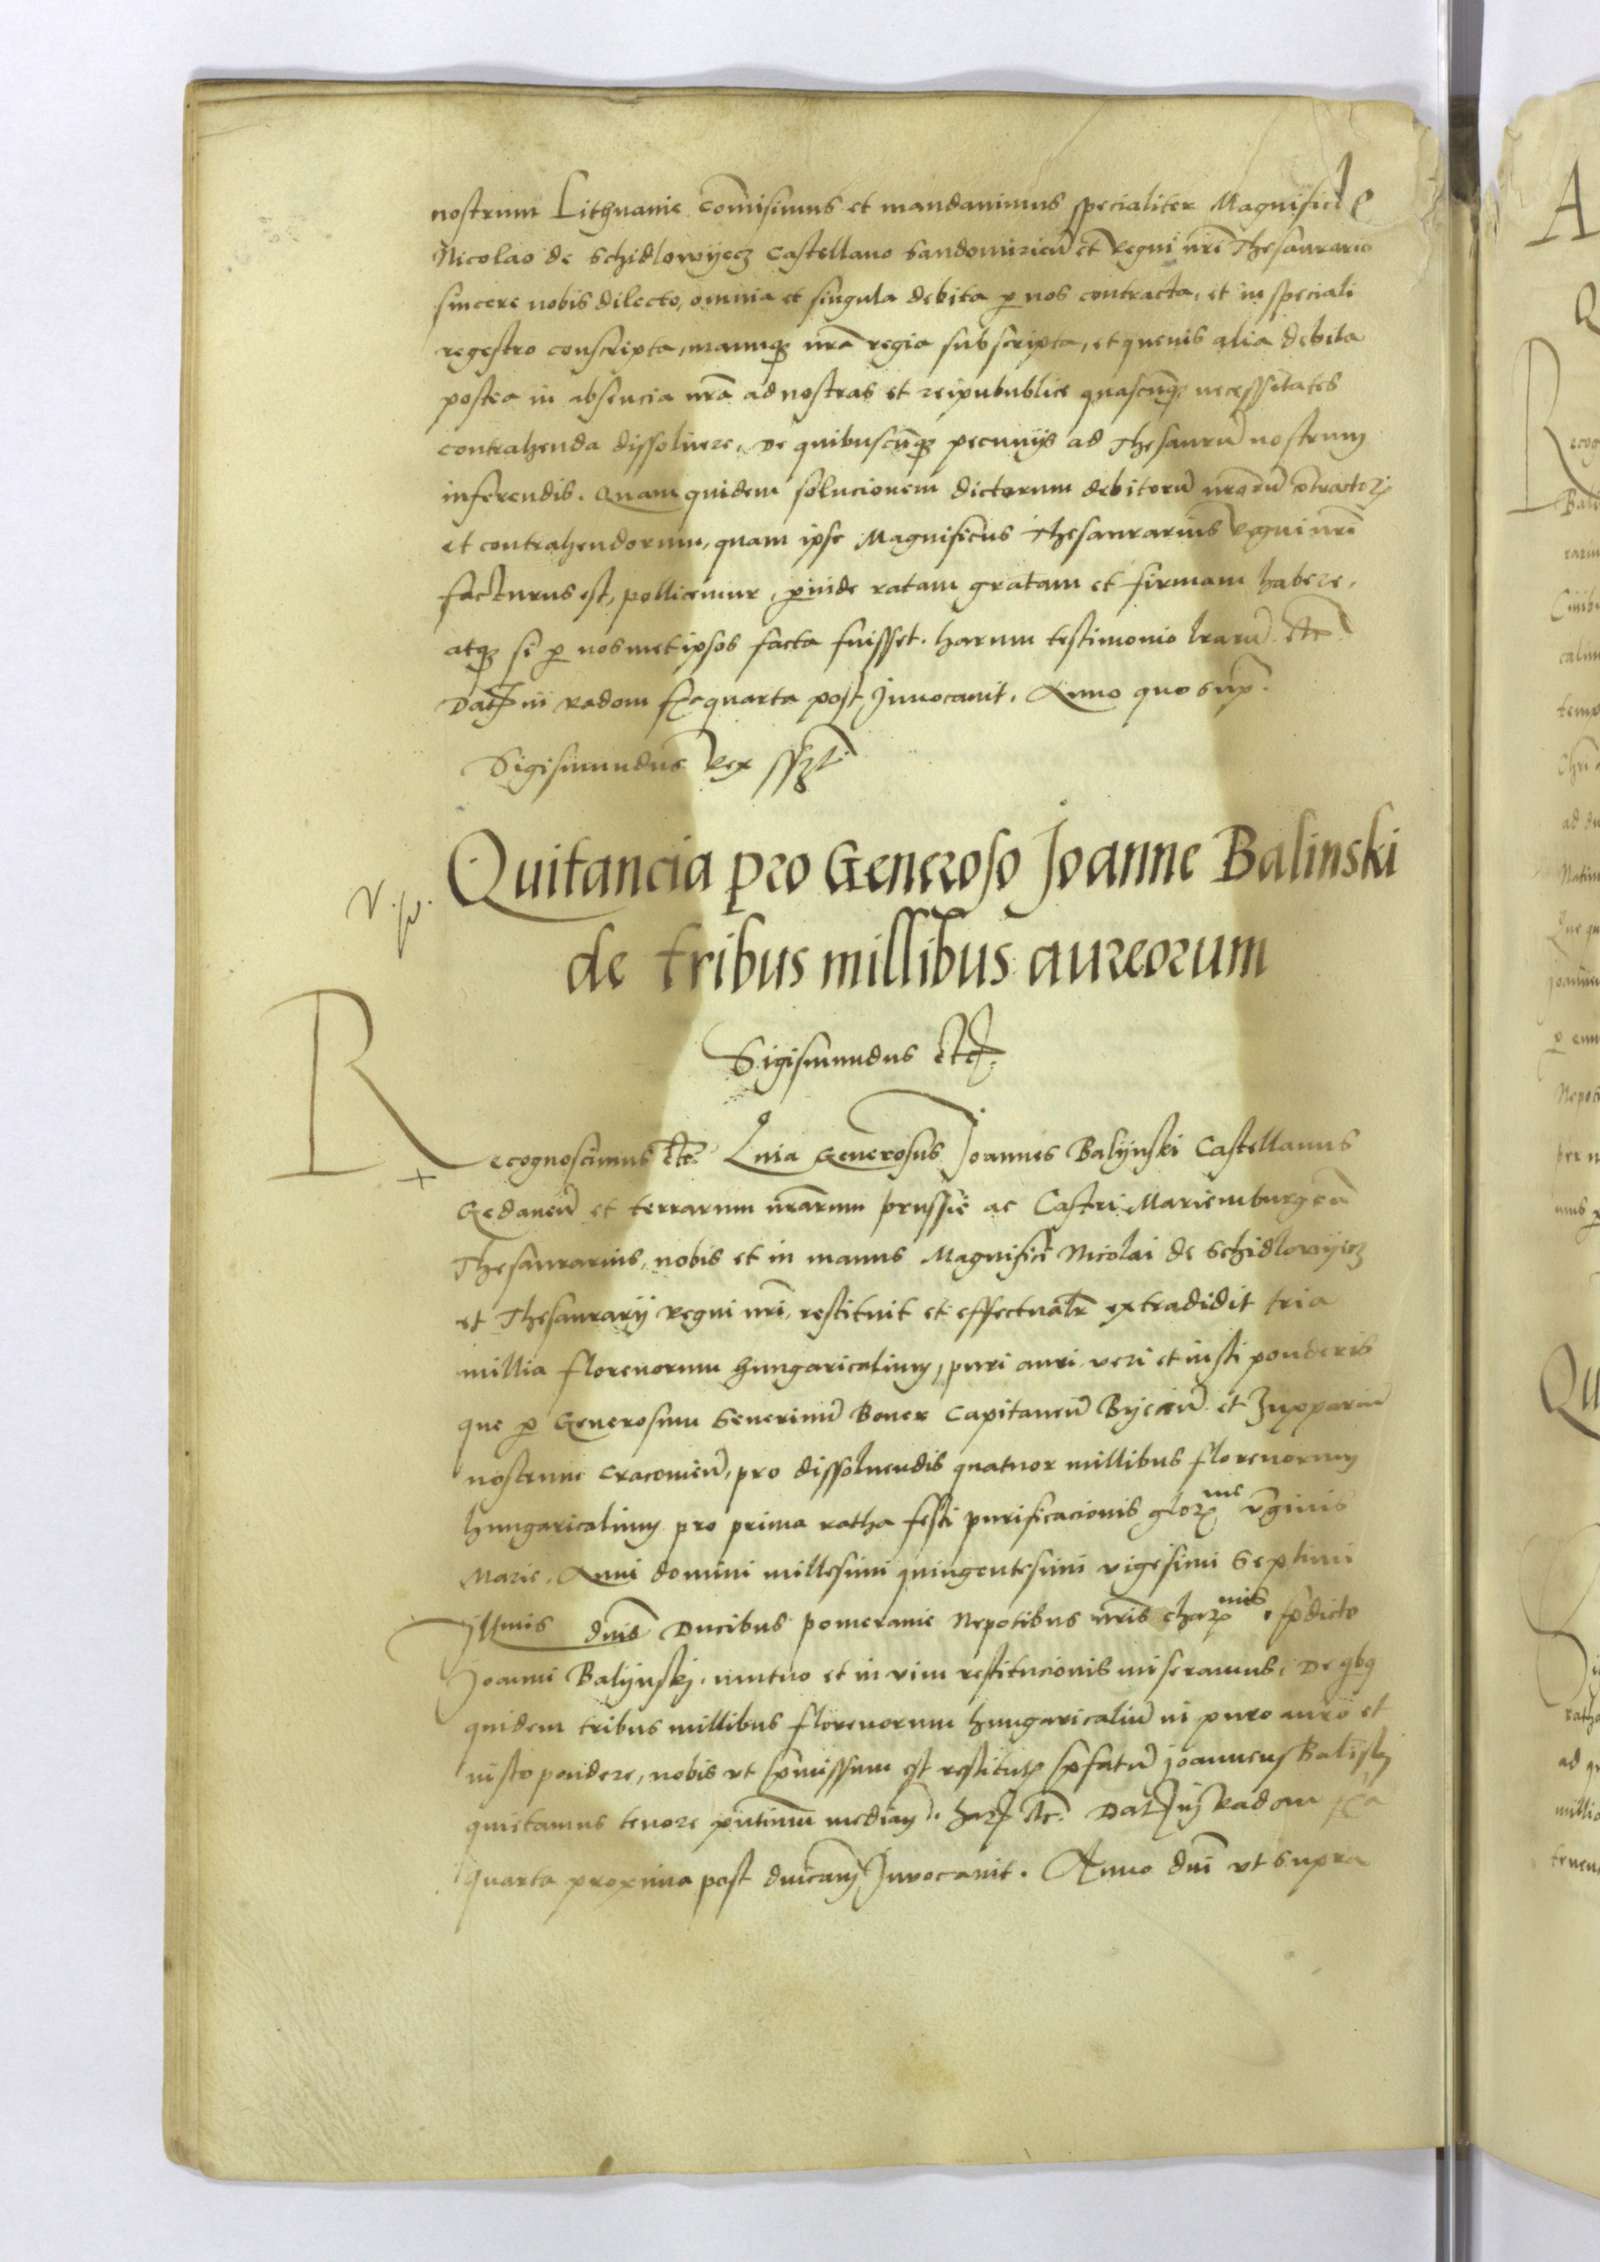 nostrum Lithuanie comisimus et mandauimus specialiter Magnifico
Nicolao de Schidlowyecz Castellano Sandomirieñ et Regni nri Thesaurario
sincere nobis dilecto, omnia et singula debita p nos contracta, et in speciali
regestro conscripta, manuq nra regia subscripta, et queuis alia debita
postea in absencia nra ad nostras et reipubublice quascunq necessitates
contrahenda dissoluere, de quibuscunq pecunijs ad Thesauru nostrum
inferendis. Quam quidem solucionem dictorum debitoru nroru contractor
et contrahendorum, quam ipse Magnificus Thesaurarius Regni nri
facturus est, pollicemur, pinde ratam gratam et firmam habere,
atq si p nosmet ipsos facta fuisset. harum testimonio lraru etc
Dat in Radom fer quarta post Inuocauit. Anno quo sup.
Sigismundus Rex sszt
V. p.
Quitancia pro Generoso Joanne Balinski
de tribus millibus aureorum
Sigismundus etc
Recognoscimus etc Quia Generosus Joannes Balynski Castellanus
Gedaneñ et terrarum nrarum prussie ac Castri Mariemburgeñ
Thesaurarius, nobis et in manus Magnifici Nicolai de Schidlowyecz
et Thesaurarij Regni nri, restituit et effectualr extradidit tria
millia florenorum hungaricalium, puri auri veri et iusti ponderis
que p Generosum Seuerinu Boner Capitaneu Byecieñ et Zupparium
nostrum Cracouieñ, pro dissoluendis quatuor millibus florenorum
hungaricalium pro prima ratha festi purificacionis glor me vginis
Marie. Anni domini millesimi quingentesimi vigesimi Septimi
Illmis dnis Ducibus pomeranie Nepotibus nris char mis. pdicto
Joanni Balynski, mutuo et in vim restitucionis miseramus, De qbq
quidem tribus millibus florenorum hungaricaliu in puro auro et
iusto pondere, nobis vt pmissum est restitut pfatu joannem Balinski
quietamus tenore pntium mediañ. har etc. Dat in Radom fer
quarta proxima post dnicam Inuocauit. Anno dni vt supra